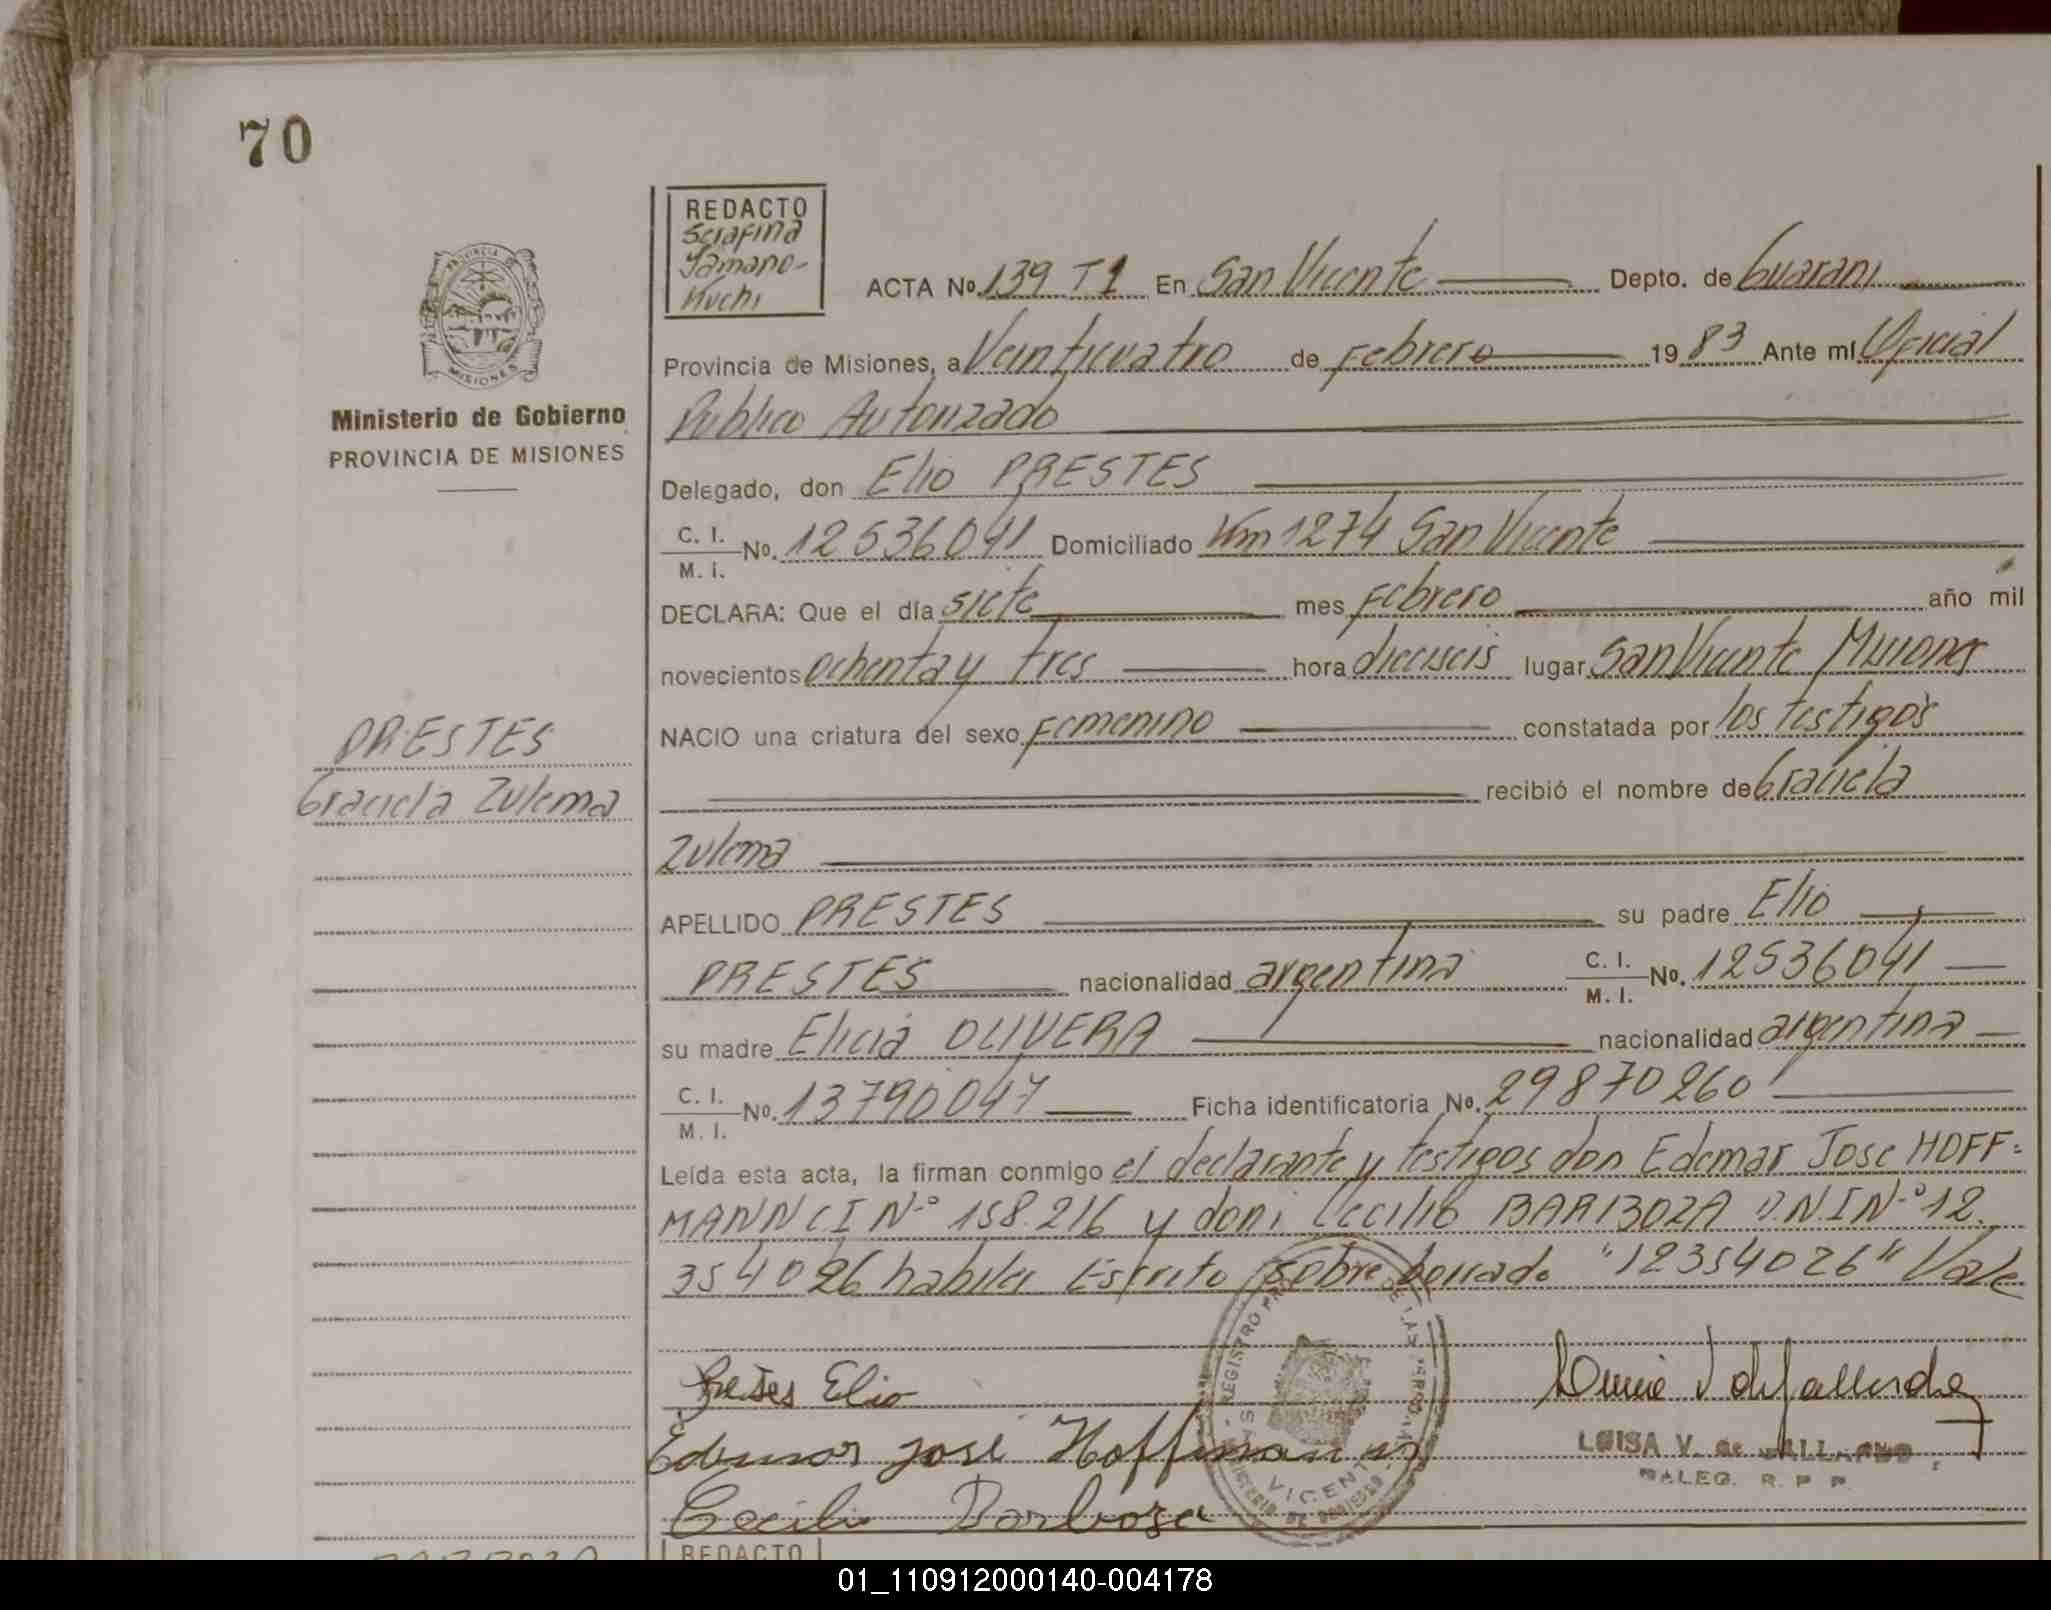 70
REDACTO
Serafina
Yamano-
Kuchi
PROVINCIA DE
MISIONES
Ministerio de Gobierno
PROVINCIA DE MISIONES
ACTA No. 139 T1 En San Vicente Depto. de Guarani
Provincia de Misiones, a Veinticuatro de Febrero 19 83 Ante mí Oficial
Publico Autorizado
Delegado, don Elio PRESTES
C. I. / M. I. No. 12536041 Domiciliado Km 1274 San Vicente
DECLARA: Que el día siete mes Febrero año mil
novecientos ochenta y tres hora dieciseis lugar San Vicente Misiones
NACIO una criatura del sexo Femenino constatada por los testigos
recibió el nombre de Graciela
Zulema
APELLIDO PRESTES su padre Elio
PRESTES nacionalidad argentina C. I. / M. I. No. 12536041
su madre Elicia OLIVERA nacionalidad argentina
C. I. / M. I. No. 13790047 Ficha identificatoria No. 29870260
Leída esta acta, la firman conmigo el declarante y testigos don Edemar Jose HOFF=
MANN CI N° 158.216 y don Cecilio BARBOZA D.N.I N° 12.
354026 habiles Escrito sobre borrado "12354026" Vale
PRESTES
Graciela Zulema
Prestes Elio
Edemar José Hoffmann
Cecilio Barboza
LUISA V. de GALLARDO
DALEG. R. P. P.
REGISTRO DE LAS VICENTE
REDACTO
01_110912000140-004178